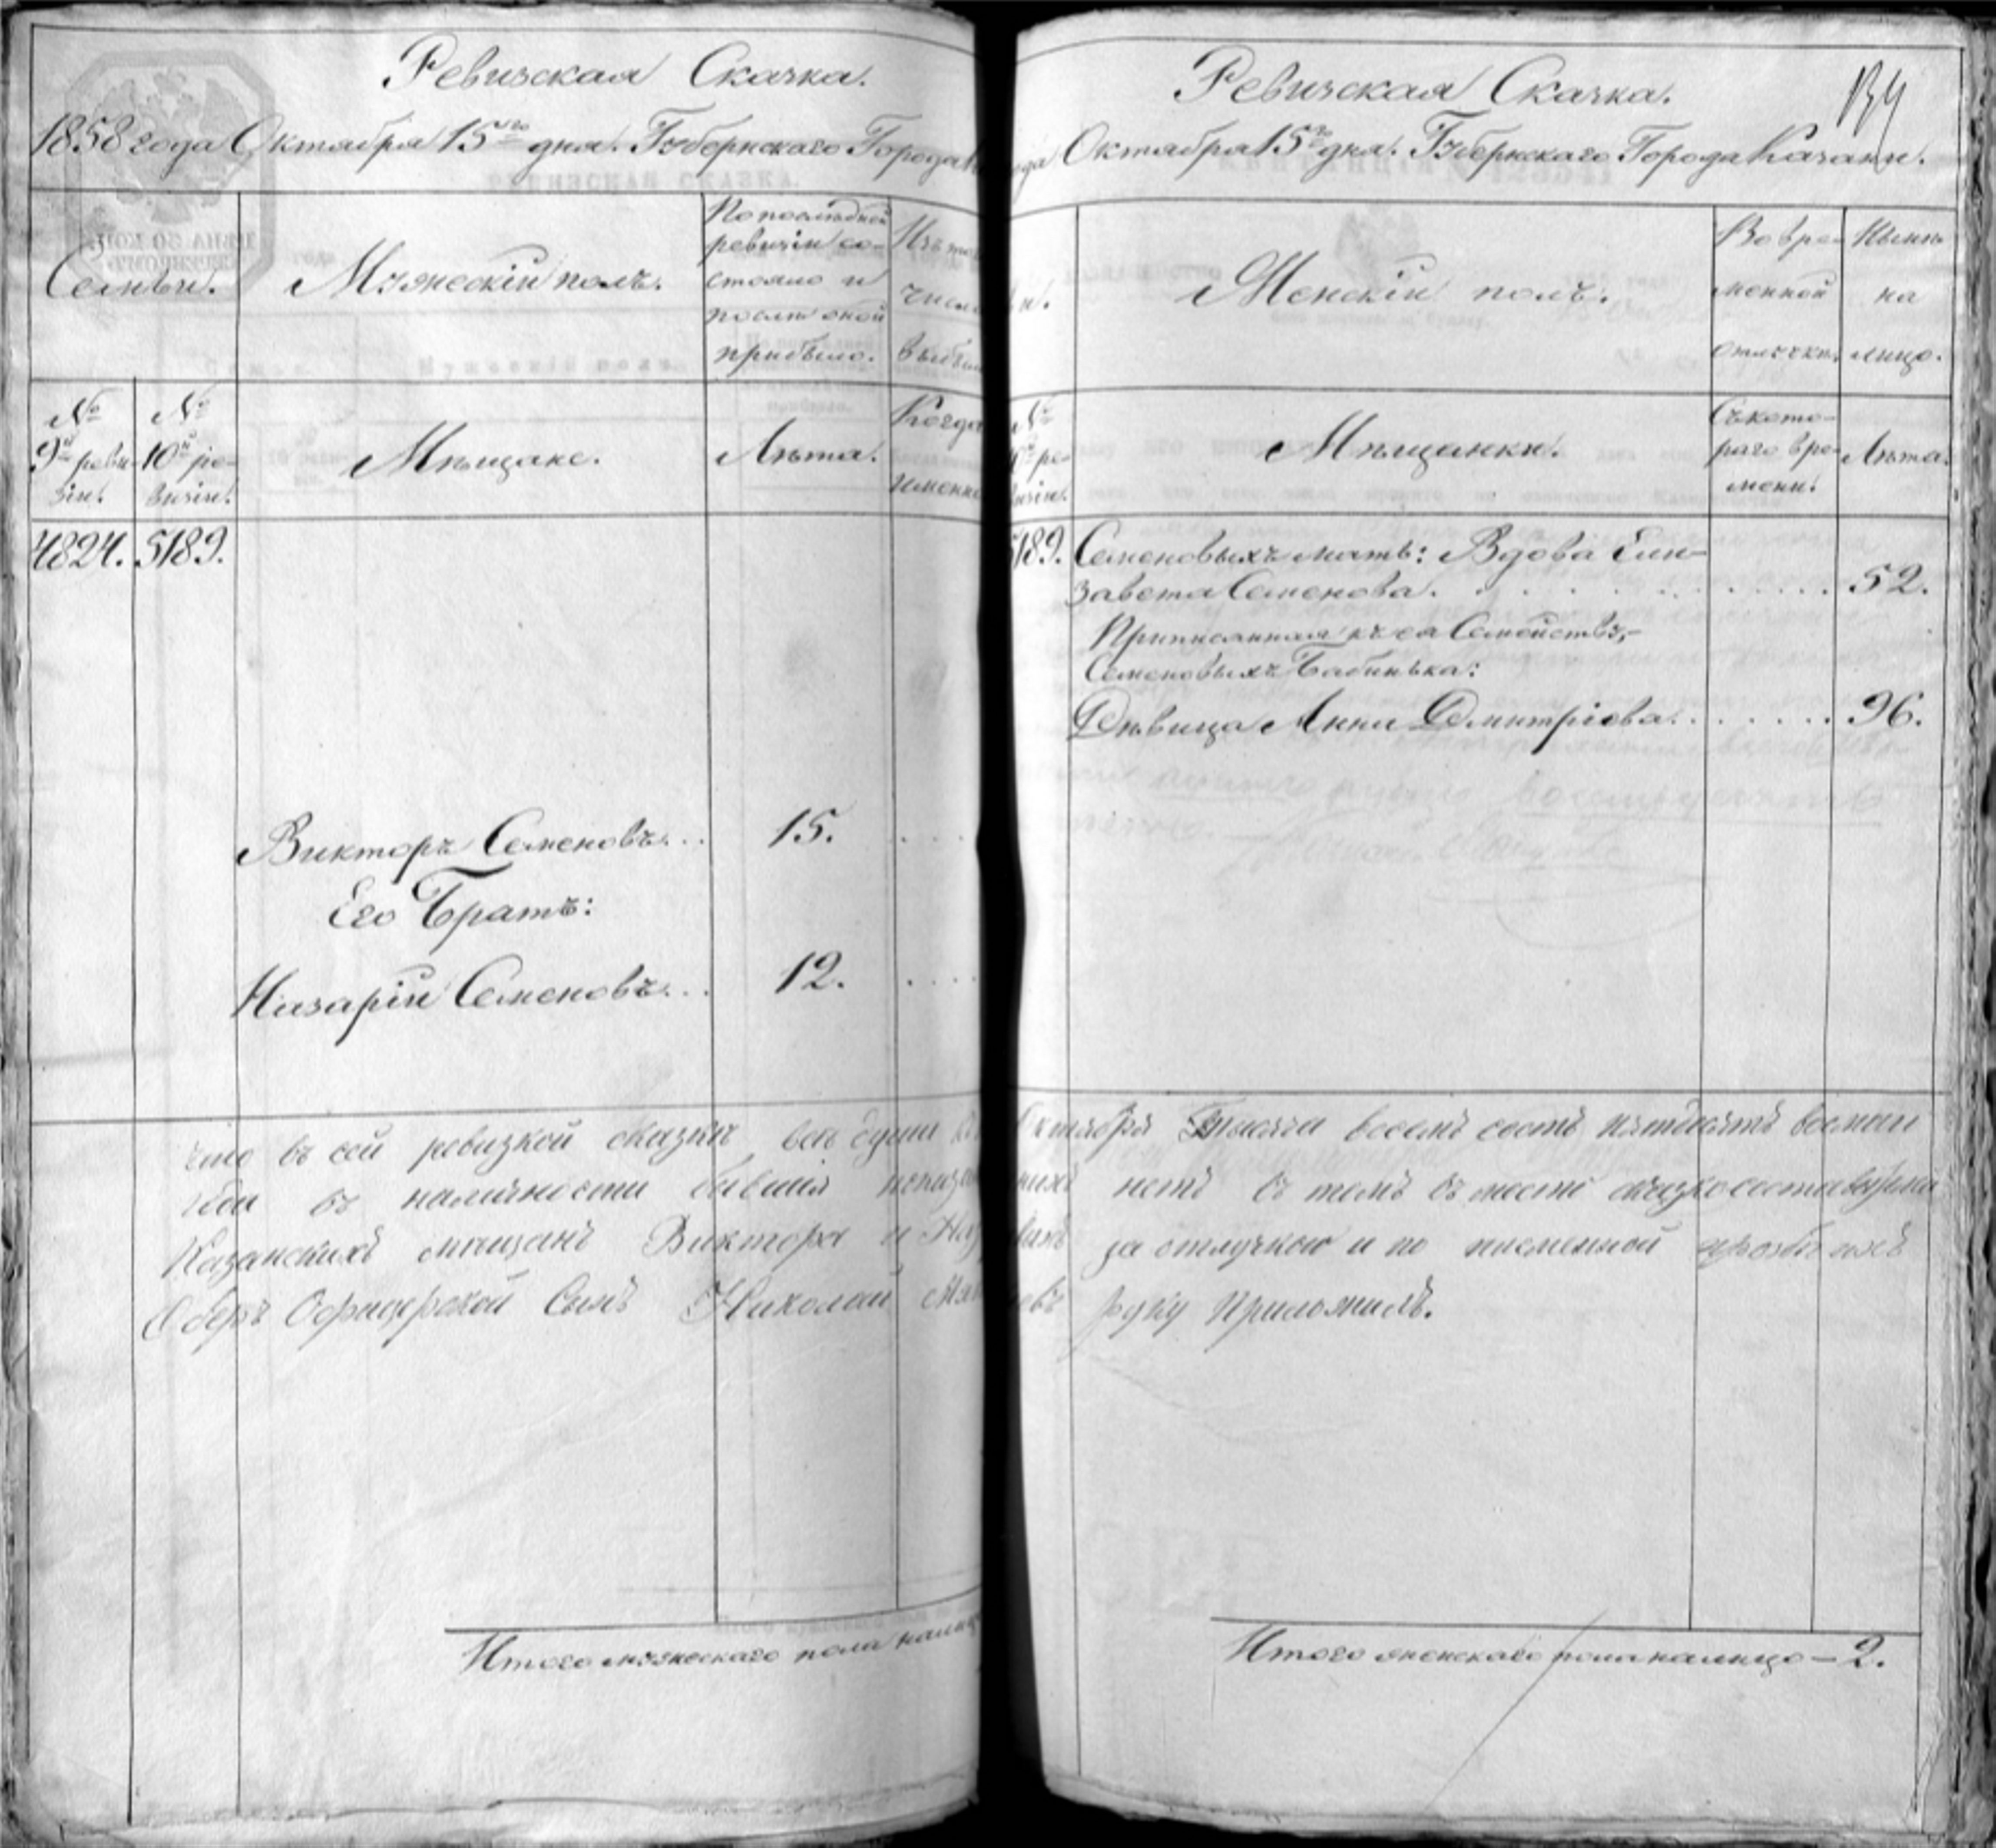 Ревизская Сказка.
1858 года Октября 15го дня. Губернскаго Города
Семьи.
Мужескій полъ.
По последней
ревизіи со-
стояло и
после оной
прибыло.
Изъ того
числа
выбыло
№
9й реви-
зіи.
№
10й ре-
визіи.
Мѣщане.
Лѣта.
Когда
именно
4824. 5189.
Викторъ Семеновъ... 15.
Его Братъ:
Назарій Семеновъ... 12.
что въ сей ревизкой сказки все души
въ наличности бывшія
Казанскихъ мещанъ Виктора и
Оберъ Офицерской Сынъ Николай
Итого мужескаго пола налицо
Ревизская Сказка.
134
Октября 15го дня. Губернскаго Города Казани.
Женскій полъ.
Во вре-
менной
отлучкѣ.
Нынѣ
на
лицо.
№
10й ре-
визіи.
Мѣщанки.
Съ кото-
раго вре-
мени.
Лѣта.
5189. Семеновыхъ мать: Вдова Ели-
завета Семенова. 52.
Приписанная къ еа Семействъ,-
Семеновыхъ Бабинька:
Дѣвица Анна Дмитріева. 96.
Октября Тысяча восемь сотъ пятдесятъ восмаи
нетъ въ томъ въ место
за отлучкою и по писменной прозбы ихъ
руку приложилъ.
Итого женскаго пола налицо – 2.